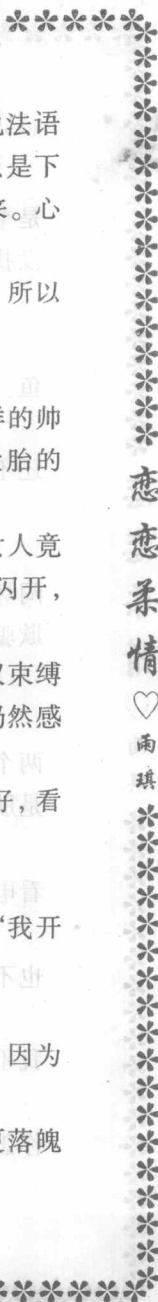 法语
是下
来。心
所以
样的帅
胎的
女人竟
闪开，
束缚
仍然感
好，看
“我开
因为
更落魄
恋恋柔情♡雨琪